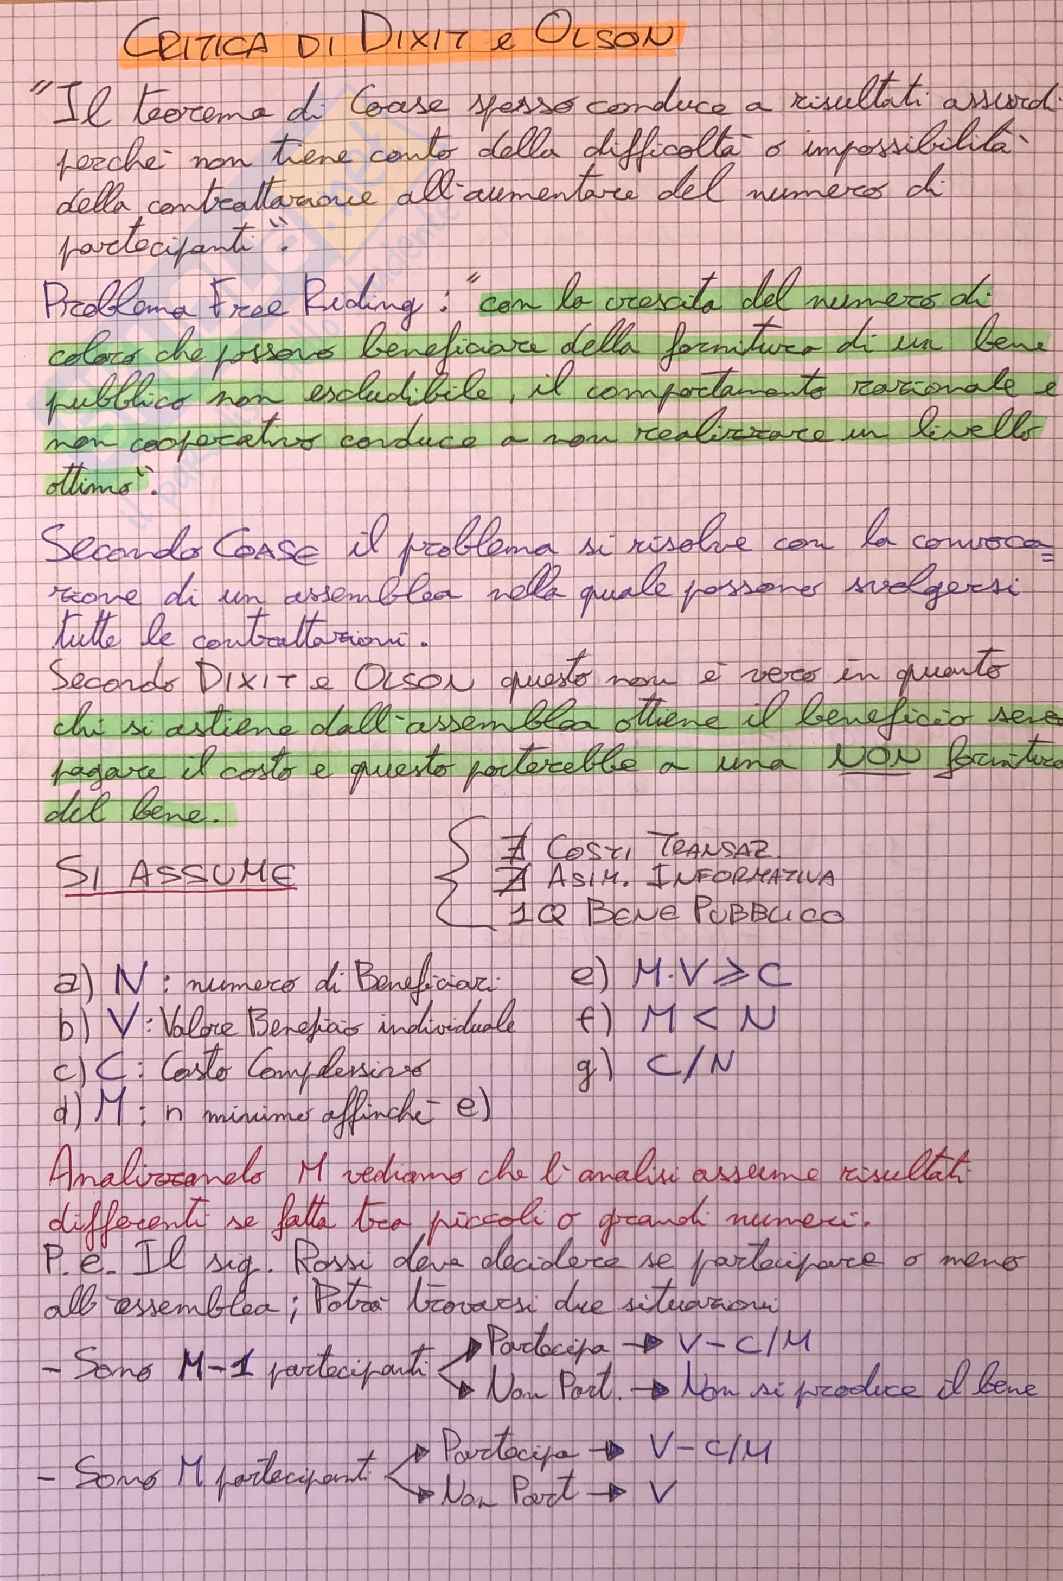 CRITICA DI DIXIT e OLSON
"Il teorema di Coase spesso conduce a risultati assurdi
perchè non tiene conto della difficoltà o impossibilità
della contrattazione all'aumentare del numero di
partecipanti".
Problema Free Riding : "con la crescita del numero di
coloro che possono beneficiare della fornitura di un bene
pubblico non escludibile, il comportamento razionale e
non cooperativo conduce a non realizzare un livello
ottimo".
Secondo COASE il problema si risolve con la convoca=
zione di un assemblea nella quale possono svolgersi
tutte le contrattazioni.
Secondo DIXIT e OLSON questo non è vero in quanto
chi si astiene dall'assemblea ottiene il beneficio senza
pagare il costo e questo porterebbe a una NON fornitura
del bene.
SI ASSUME
∄ COSTI TRANSAZ.
∄ ASIM. INFORMATIVA
1Q BENE PUBBLICO
a) N : numero di Beneficiari
b) V : Valore Beneficio individuale
c) C : Costo Complessivo
d) M : n minimo affinchè e)
e) M·V ⩾ C
f) M < N
g) C/N
Analizzando M vediamo che l'analisi assume risultati
differenti se fatta tra piccoli o grandi numeri.
P.e. Il sig. Rossi deve decidere se partecipare o meno
all'assemblea ; Potrà trovarsi due situazioni
- Sono M-1 partecipanti
Partecipa → V - C/M
Non Part. → Non si produce il bene
- Sono M partecipanti
Partecipa → V - C/M
Non Part → V